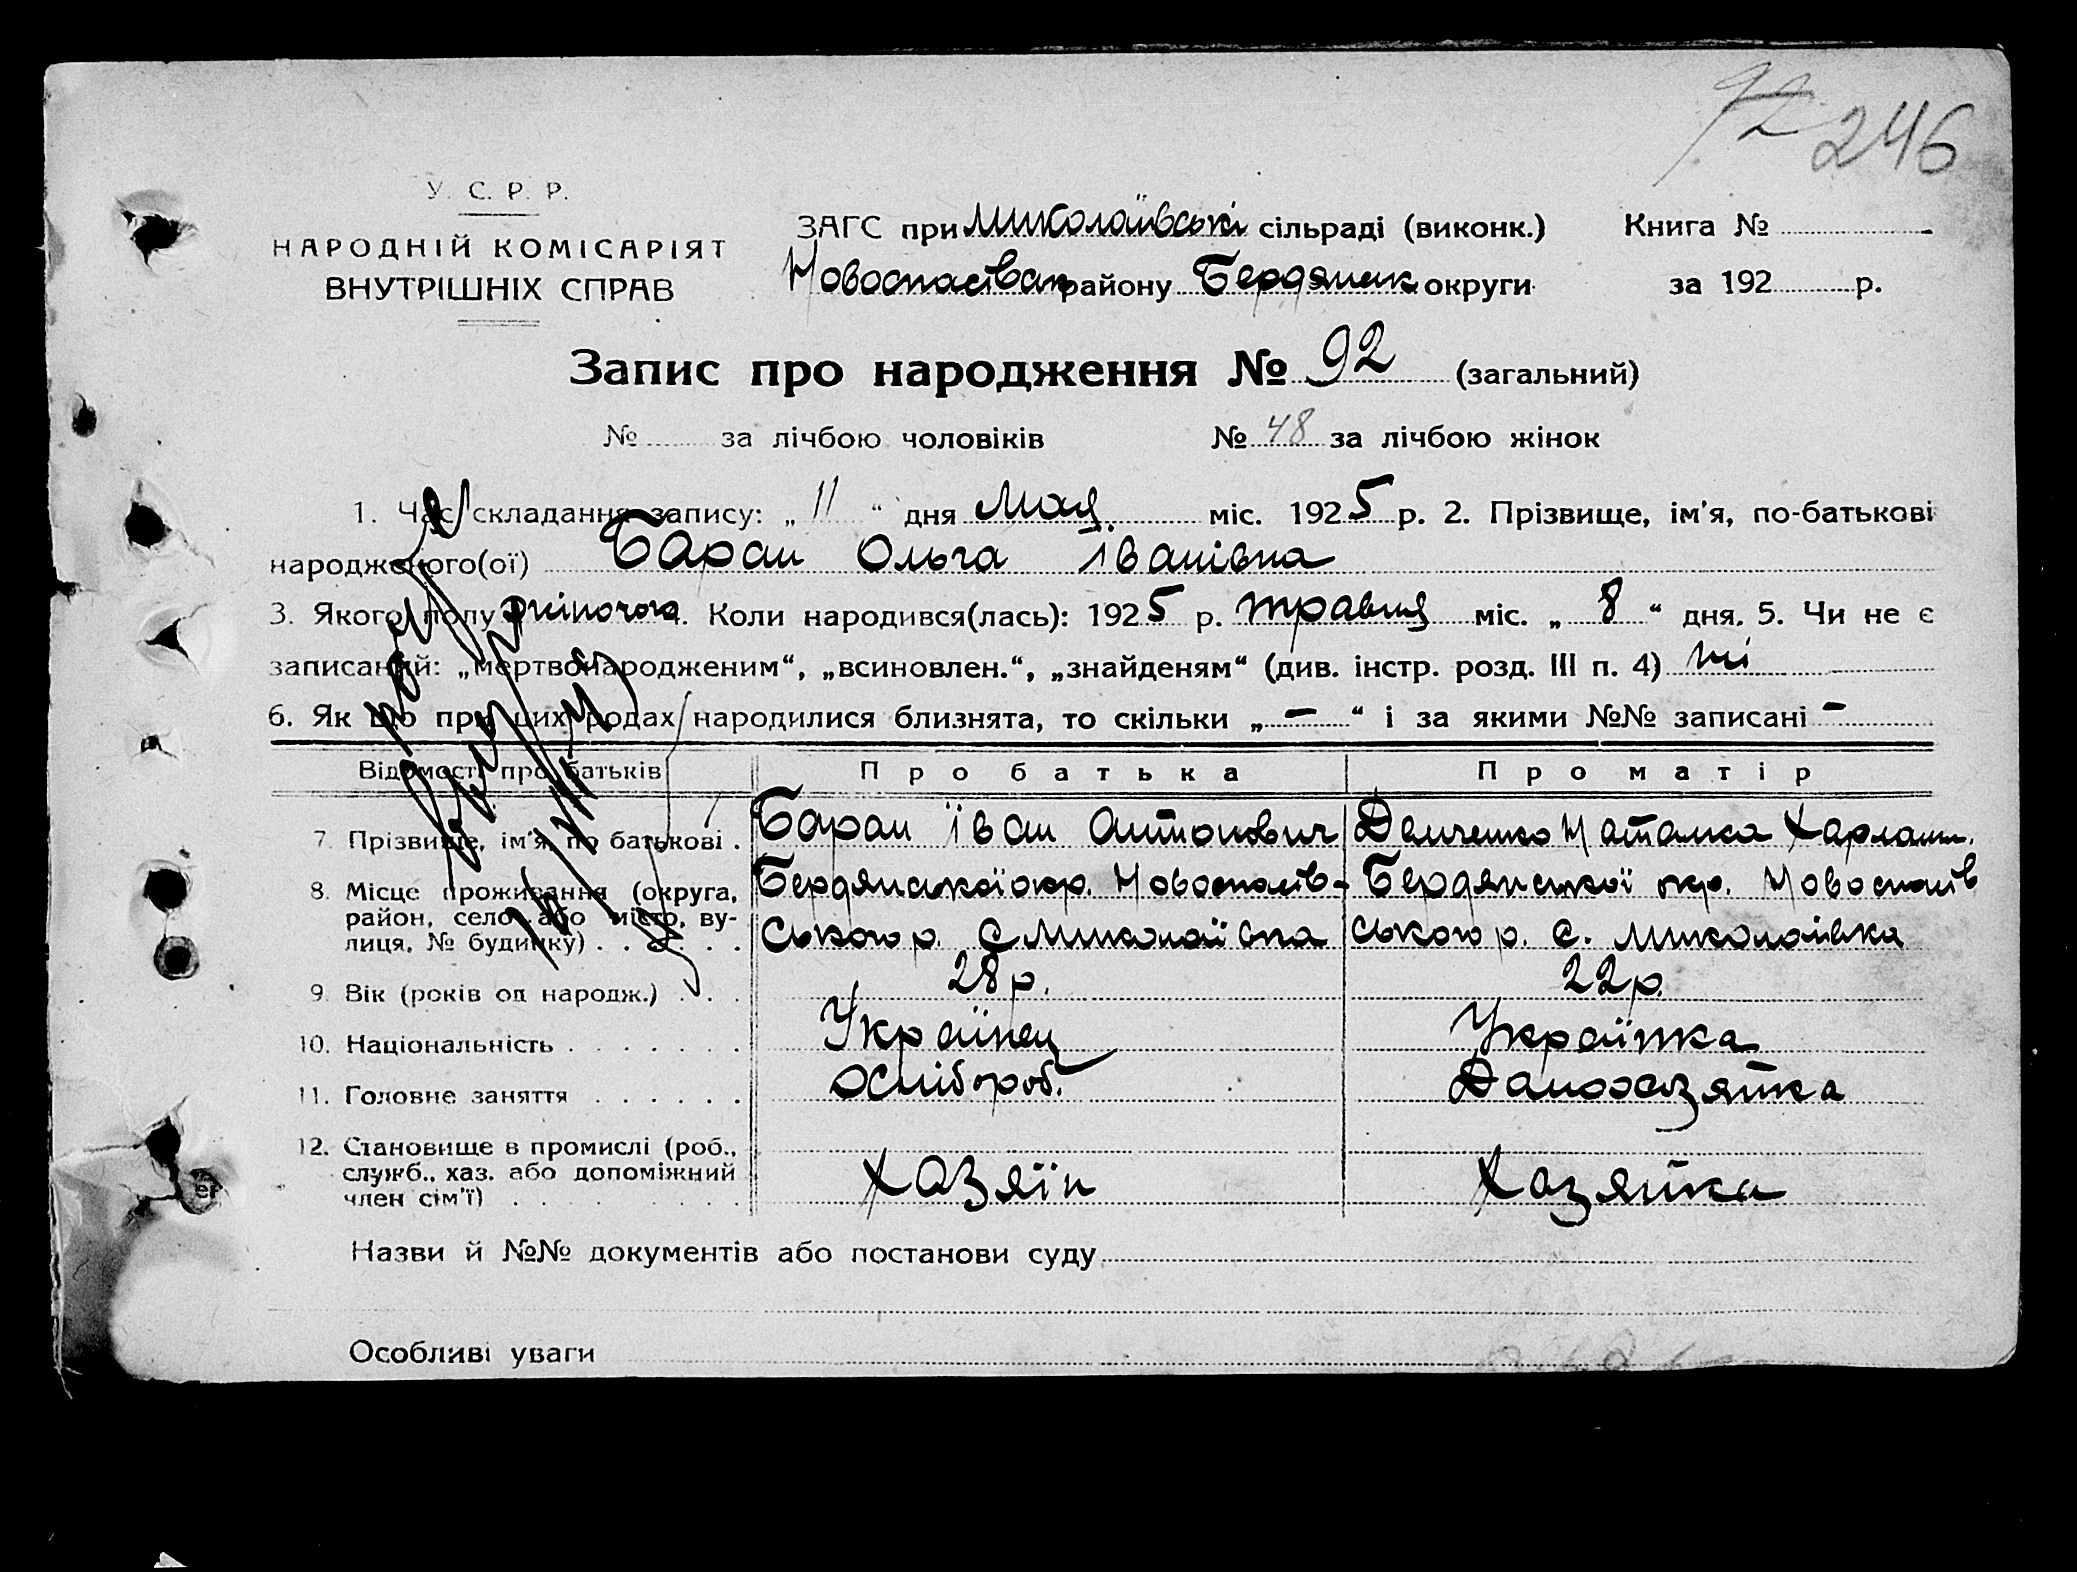 92 246
У. С. Р. Р.
НАРОДНІЙ КОМІСАРІЯТ
ВНУТРІШНІХ СПРАВ
ЗАГС при Миколаївські сільраді (виконк.) Книга №
Новоспасівськ району Бердянськ округи за 192 р.
Запис про народження № 92 (загальний)
№ за лічбою чоловіків № 48 за лічбою жінок
1. Час складання запису: „ 11 “ дня мая міс. 1925 р. 2. Прізвище, ім'я, по-батькові
народженого(ої) Баран Ольга Іванівна
3. Якого полу жіночого 4. Коли народився(лась): 1925 р. травня міс. „ 8 “ дня. 5. Чи не є
записаний: „мертвонародженим“, „всиновлен.“, „знайденям“ (див. інстр. розд. III п. 4) ні
6. Як що при цих родах народилися близнята, то скільки „ — “ і за якими №№ записані —
Відомості про батьків Про батька Про матір
7. Прізвище, ім'я, по батькові . Баран Іван Антонович Демченко Наталка Харламп.
8. Місце проживання (округа, район, село або місто, вулиця, № будинку) . . . . . Бердянської окр. Новоспасівського р. с. Миколаївка Бердянської окр. Новоспасівського р. с. Миколаївка
9. Вік (років од народж.) . . . 28 р. 22 р.
10. Національність . . . . . . . Українец Українка
11. Головне заняття . . . . . . хлібороб. Домохазяйка
12. Становище в промислі (роб., служб., хаз. або допоміжний член сім'ї) . . . . . . . Хазяїн Хазяйка
Назви й №№ документів або постанови суду
Особливі уваги